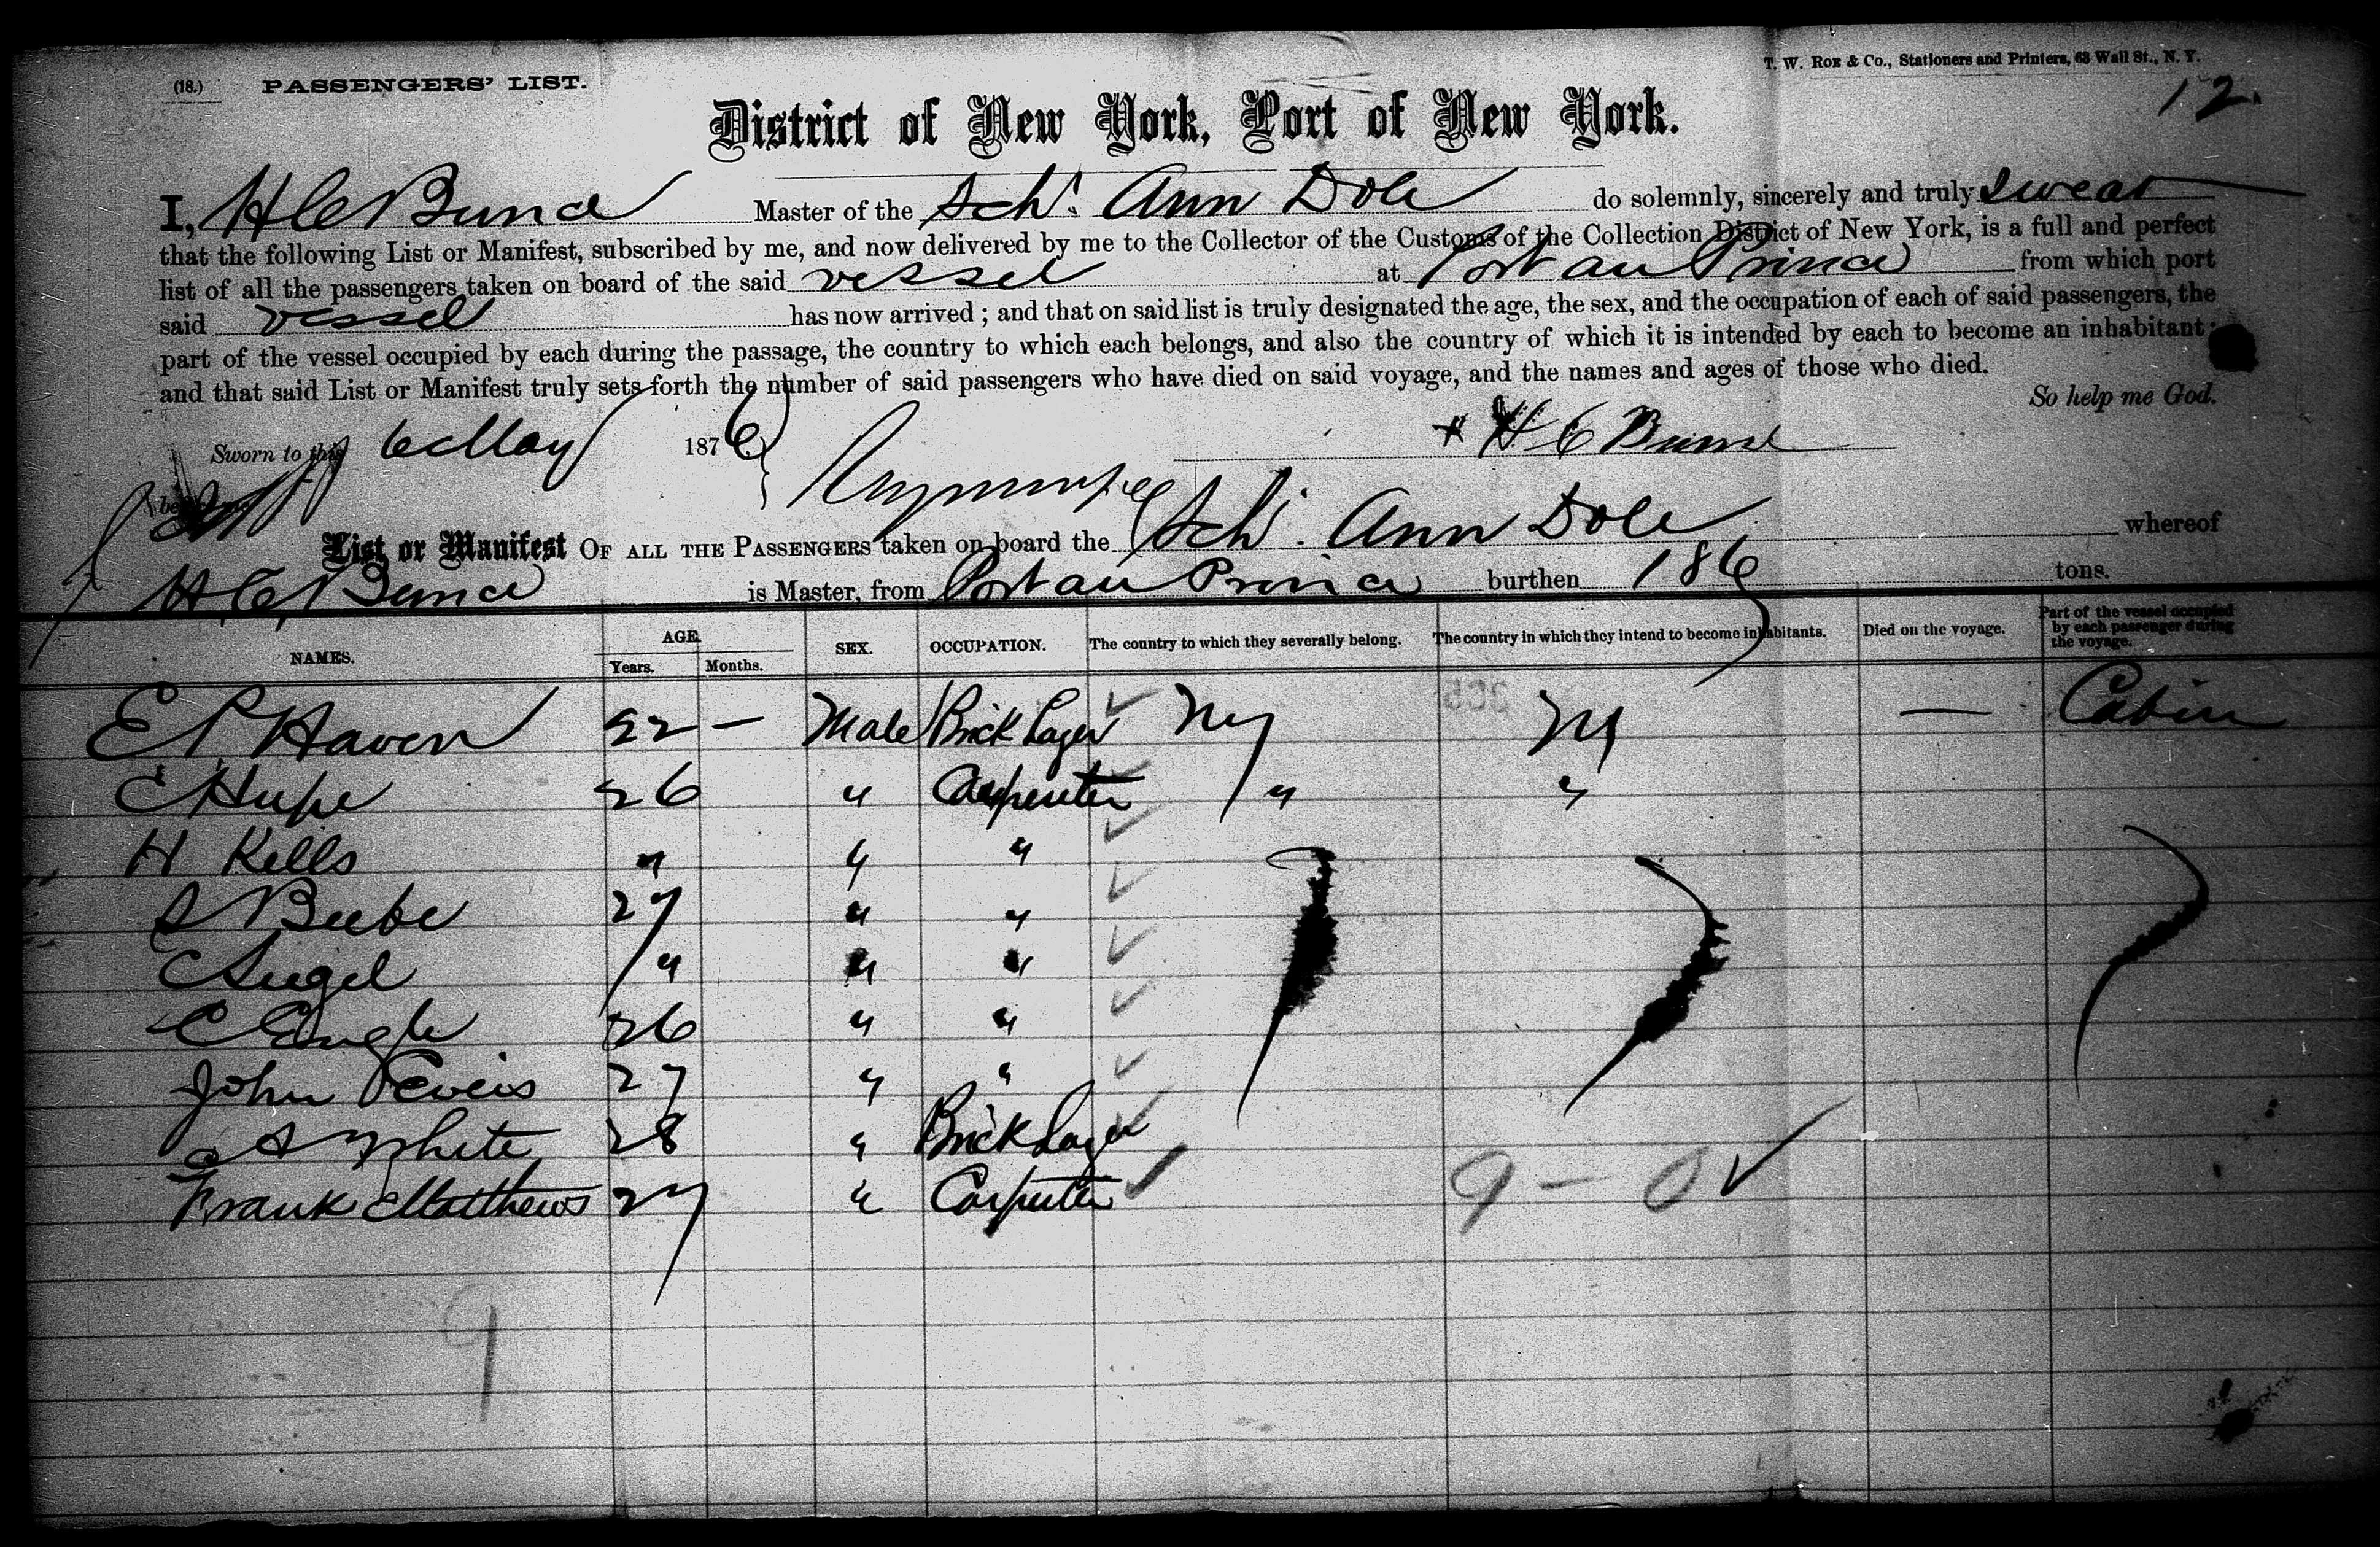 (18.) PASSENGERS' LIST.
T. W. Roe & Co., Stationers and Printers, 63 Wall St., N. Y.
12.
District of New York, Port of New York.
I, H C Bunce Master of the Schr. Ann Dole do solemnly, sincerely and truly swear
that the following List or Manifest, subscribed by me, and now delivered by me to the Collector of the Customs of the Collection District of New York, is a full and perfect
list of all the passengers taken on board of the said vessel at Port au Prince from which port
said vessel has now arrived ; and that on said list is truly designated the age, the sex, and the occupation of each of said passengers, the
part of the vessel occupied by each during the passage, the country to which each belongs, and also the country of which it is intended by each to become an inhabitant ;
and that said List or Manifest truly sets forth the number of said passengers who have died on said voyage, and the names and ages of those who died.
So help me God.
Sworn to this 6 May 1876 H C Bunce
before me
List or Manifest OF ALL THE PASSENGERS taken on board the Schr. Ann Dole whereof
H C Bunce is Master, from Port au Prince burthen 186 tons.
NAMES. AGE. Years. Months. SEX. OCCUPATION. The country to which they severally belong. The country in which they intend to become inhabitants. Died on the voyage. Part of the vessel occupied by each passenger during the voyage.
E P Haven 22 — Male Brick Layer ✓ NY NY — Cabin
C Hupe 26 " Carpenter ✓ " "
H Kells " " " ✓
S Beebe 27 " " ✓
" " " ✓
C Engle 26 " " ✓
John 27 " " ✓
A White 28 " Brick Layer ✓
Frank Matthews 27 " Carpenter ✓ 9 - 0 ✓
9